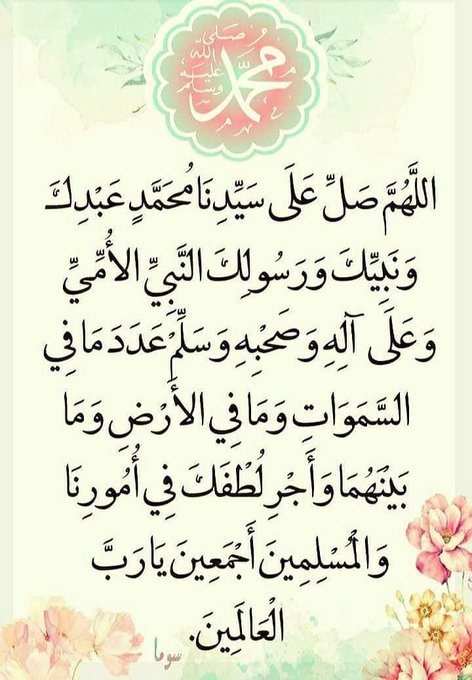 محمد
صلى
الله
عليه
وسلم
اللَّهُمَّ صَلِّ عَلَى سَيِّدِنَا مُحَمَّدٍ عَبْدِكَ
وَنَبِيِّكَ وَرَسُولِكَ النَّبِيِّ الأُمِّيِّ
وَعَلَى آلِهِ وَصَحْبِهِ وَسَلِّمْ عَدَدَ مَا فِي
السَّمَوَاتِ وَمَا فِي الأَرْضِ وَمَا
بَيْنَهُمَا وَأَجْرِ لُطْفَكَ فِي أُمُورِنَا
وَالْمُسْلِمِينَ أَجْمَعِينَ يَا رَبَّ
الْعَالَمِينَ.
سوما